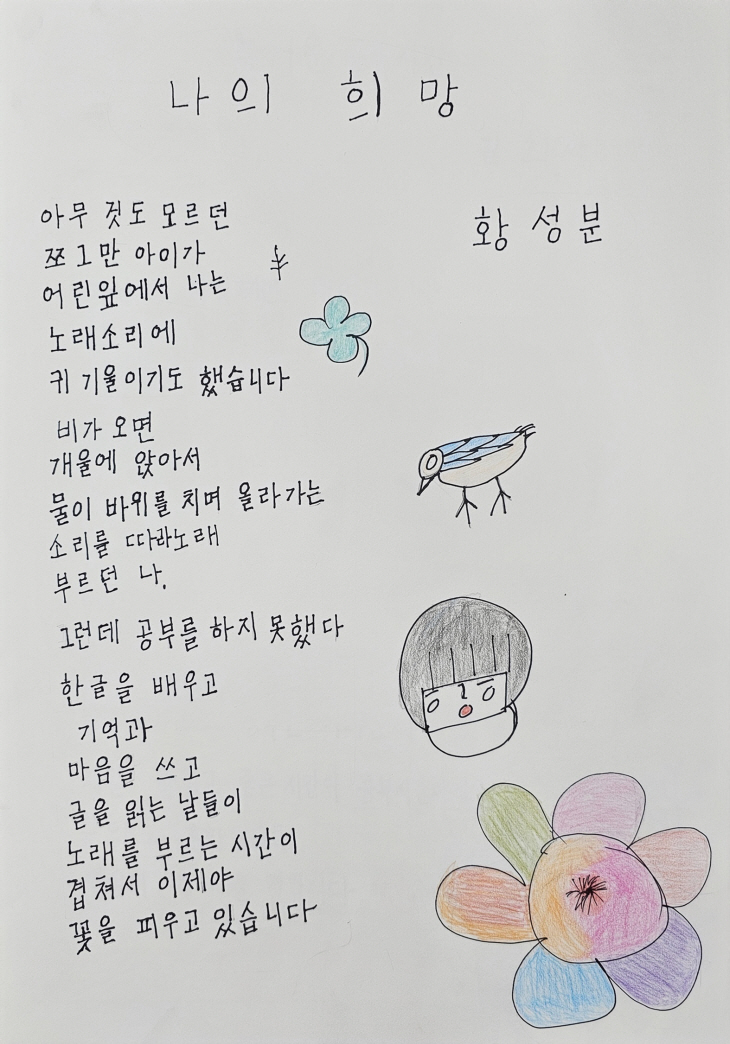 나의 희망
황성분
아무 것도 모르던
쪼그만 아이가
어린잎에서 나는
노래소리에
귀 기울이기도 했습니다
비가 오면
개울에 앉아서
물이 바위를 치며 올라가는
소리를 따라노래
부르던 나.
그런데 공부를 하지 못했다
한글을 배우고
기억과
마음을 쓰고
글을 읽는 날들이
노래를 부르는 시간이
겹쳐서 이제야
꽃을 피우고 있습니다